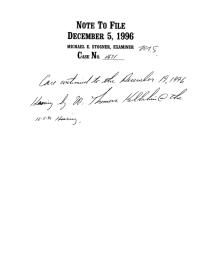 NOTE TO FILE
DECEMBER 5, 1996
MICHAEL E. STOGNER, EXAMINER
CASE NO.
Case continued to the December 19, 1996
Hearing by W. Thomas Kellahin @ the
Hearing.